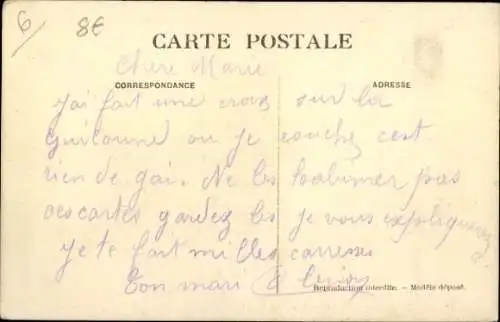 6/ 8€
CARTE POSTALE
Chere Marie
CORRESPONDANCE ADRESSE
j'ai fait une croix sur la
ou je couche c est
rien de gai. Ne les habimer pas
ces cartes gardez les je vous expliquerez
je te fait milles carresses
Ton mari
Reproduction interdite. - Modèle déposé.